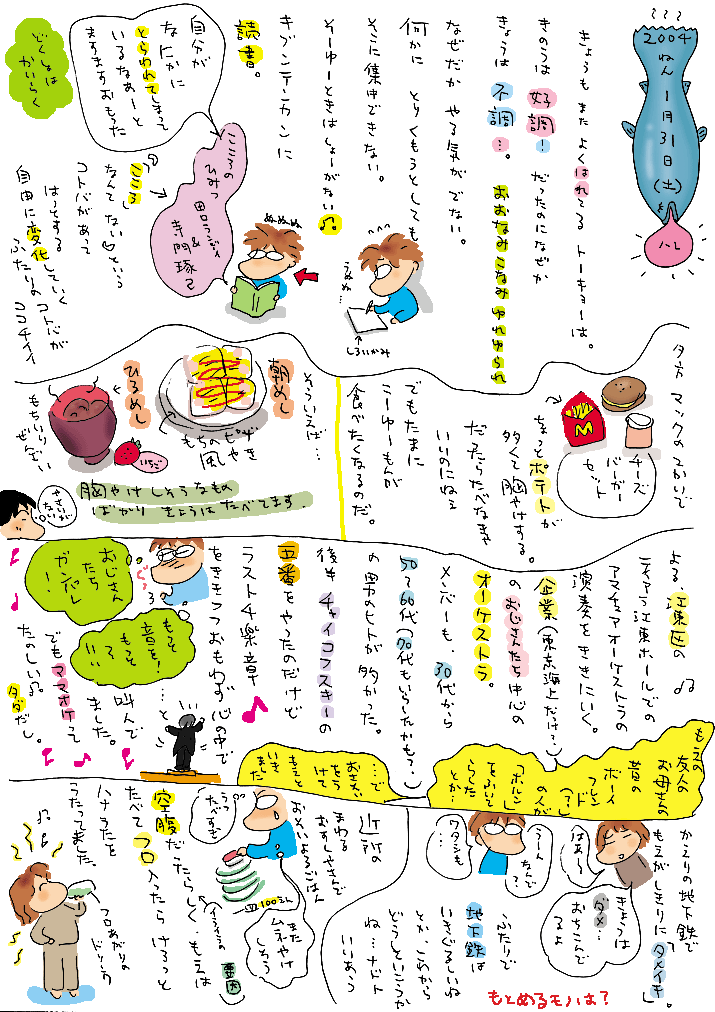 2004
ねん
1月
31日
(土)
ハレ
きょうも また よくはれてる トーキョーは。
きのうは 好調! だったのになぜか
きょうは 不調…。 おおなみこなみ ゆれゆられ
なぜだか やる気が でない。
何かに とりくもうとしても
そこに集中できない。
そーゆーときは しょーがない♫
キブンテンカンに
読書。
うぬぬ…
しろいかみ
ぬぬぬぬ
こころの
ひみつ
田口ランディ
&
寺門琢己
自分が
なにかに
とらわれてしまって
いるなあーと
ますますおもった
どくしょは
かいらく
こころ
なんてない♡という
コトバがあって
はっとする
自由に変化していく コトバが
ふたりの ココチイイ
夕方 マックのつかいで
チーズ
バーガー
セット
ちょっとポテトが
多くて 胸やけする。
だったらたべなきゃ
いいのにねえ
でもたまに
こーゆーもんが
食べたくなるのだ。
そういえば…
朝めし
もちの ピザ
風 やき
ひるめし
いちご
もちいり
ぜんざい
胸やけしそうなもの
ばかり きょうは たべてます。
やさいが
ない…
よる、江東区の ♫
ティアラ江東ホールでの
アマチュアオーケストラの
演奏を ききにいく。
企業(東京海上だっけ?)
のおじさんたち中心の
オーケストラ。
メンバーも、30代から
50で60代(70代もいらしたかも?)
の男のヒトが 多かった。
後半 チャイコフスキーの
五番をやったのだけど
ラスト4楽章
をききつつ おもわず 心の中で
…叫んで
ました。
でもママオケって
たのしい♫
タダだし。
おじさん
たち
ガンバレ
!
もっと
音を!
もっと
もえの
友人の
お母さんの
昔の
ボーイ
フレンド
(?)
の人が
「ホルン」
をふいて
らした
とか…
…で
おさそい
をうけて
きいて
いました
かえりの地下鉄で
もえがしきりに「タメイキ」。
はあ〜
きょうは
ダメ…
おちこんで
るよ
うーん
なんで
?
ワタシも…
ふたりで
地下鉄は
いきぐるしいね
とか、これから
どうしていこうか
ね… ナドと
いいあう
もとめるモノは?
近所の
まわる
おすしやさんで
おそいよるごはん
うっ
たべすぎ
皿100えん
また
ムネやけ
しそう
空腹だったらしく、もえは
イライラの
要因
たべて フロ入ったら けろっと
ハナうたを
うたってました。
フロあがりの
ドリンク